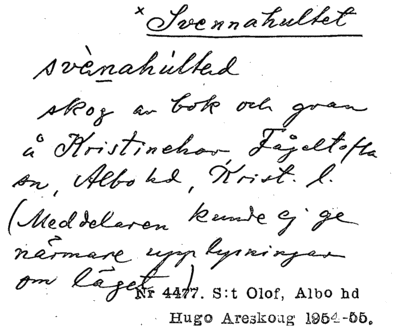 × Svennahultet
svènahúlted
skog av bok och gran
å Kristinehov, Fågeltofta
sn, Albo hd, Krist. l.
(Meddelaren kunde ej ge
närmare upplysningar
om läget)
Nr 4477. S:t Olof, Albo hd
Hugo Areskoug 1954-55.